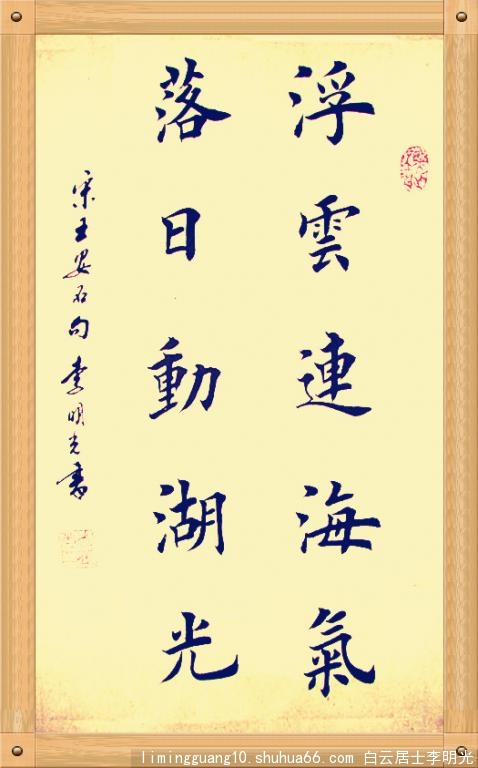 浮雲連海氣
落日動湖光
宋王安石句 李明光書
limingguang10.shuhua66.com 白云居士李明光